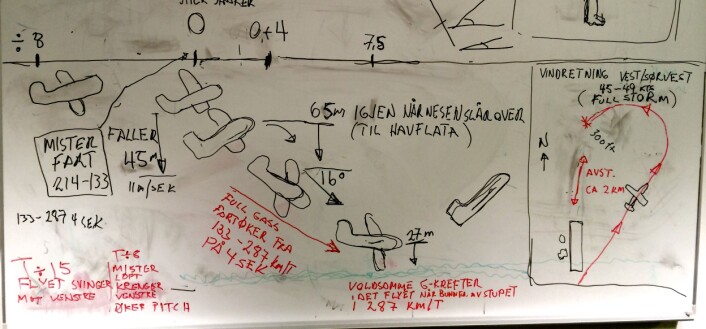 STICK SHAKER
÷ 8
0
0,4
7,5
MISTER
FART
214-133
133-287 4 SEK
FALLER
45m
11m/SEK
65m IGJEN NÅR NESEN SLÅR OVER
(TIL HAVFLATA)
16°
FULL GASS
FART ØKER FRA
133 - 287 KM/T
PÅ 4 SEK
27m
VOLDSOMME G-KREFTER
I DET FLYET NÅR BUNNEN AV STUPET
I 287 KM/T
T÷15
FLYET SVINGER
MOT VENSTRE
T÷8
MISTER
LØFT
KRENGER
VENSTRE
ØKER PITCH
VINDRETNING VEST/SØRVEST
45-49 KTS
(FULL STORM)
300ft
N
AVST.
CA 2 KM